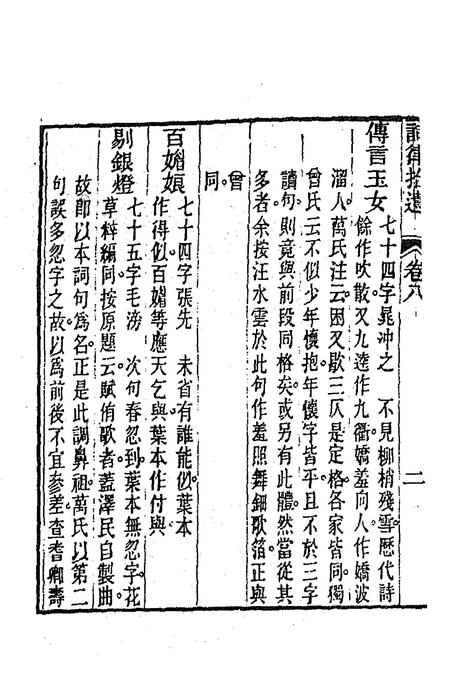 詞律拾遺 卷八 二
傳言玉女 七十四字晁沖之 不見柳梢殘雪歷代詩
餘作吹散又九逵作九衢嬌羞向人作嬌波
溜人萬氏注云困又歇三仄是定格各家皆同獨
曾氏云不似少年懷抱年懷字皆平且不於三字
讀句則竟與前段同格矣或另有此體然當從其
多者余按汪水雲於此句作羞照舞鈿歌箔正與
曾同
百媚娘 七十四字張先 未省有誰能似葉本
作得似百媚等應天乞與葉本作付與
剔銀燈 七十五字毛滂 次句春忽到葉本無忽字花
草粹編同按原題云賦侑歌者蓋澤民自製曲
故卽以本詞句爲名正是此調鼻祖萬氏以第二
句誤多忽字之故以爲前後不宜參差查耆卿壽